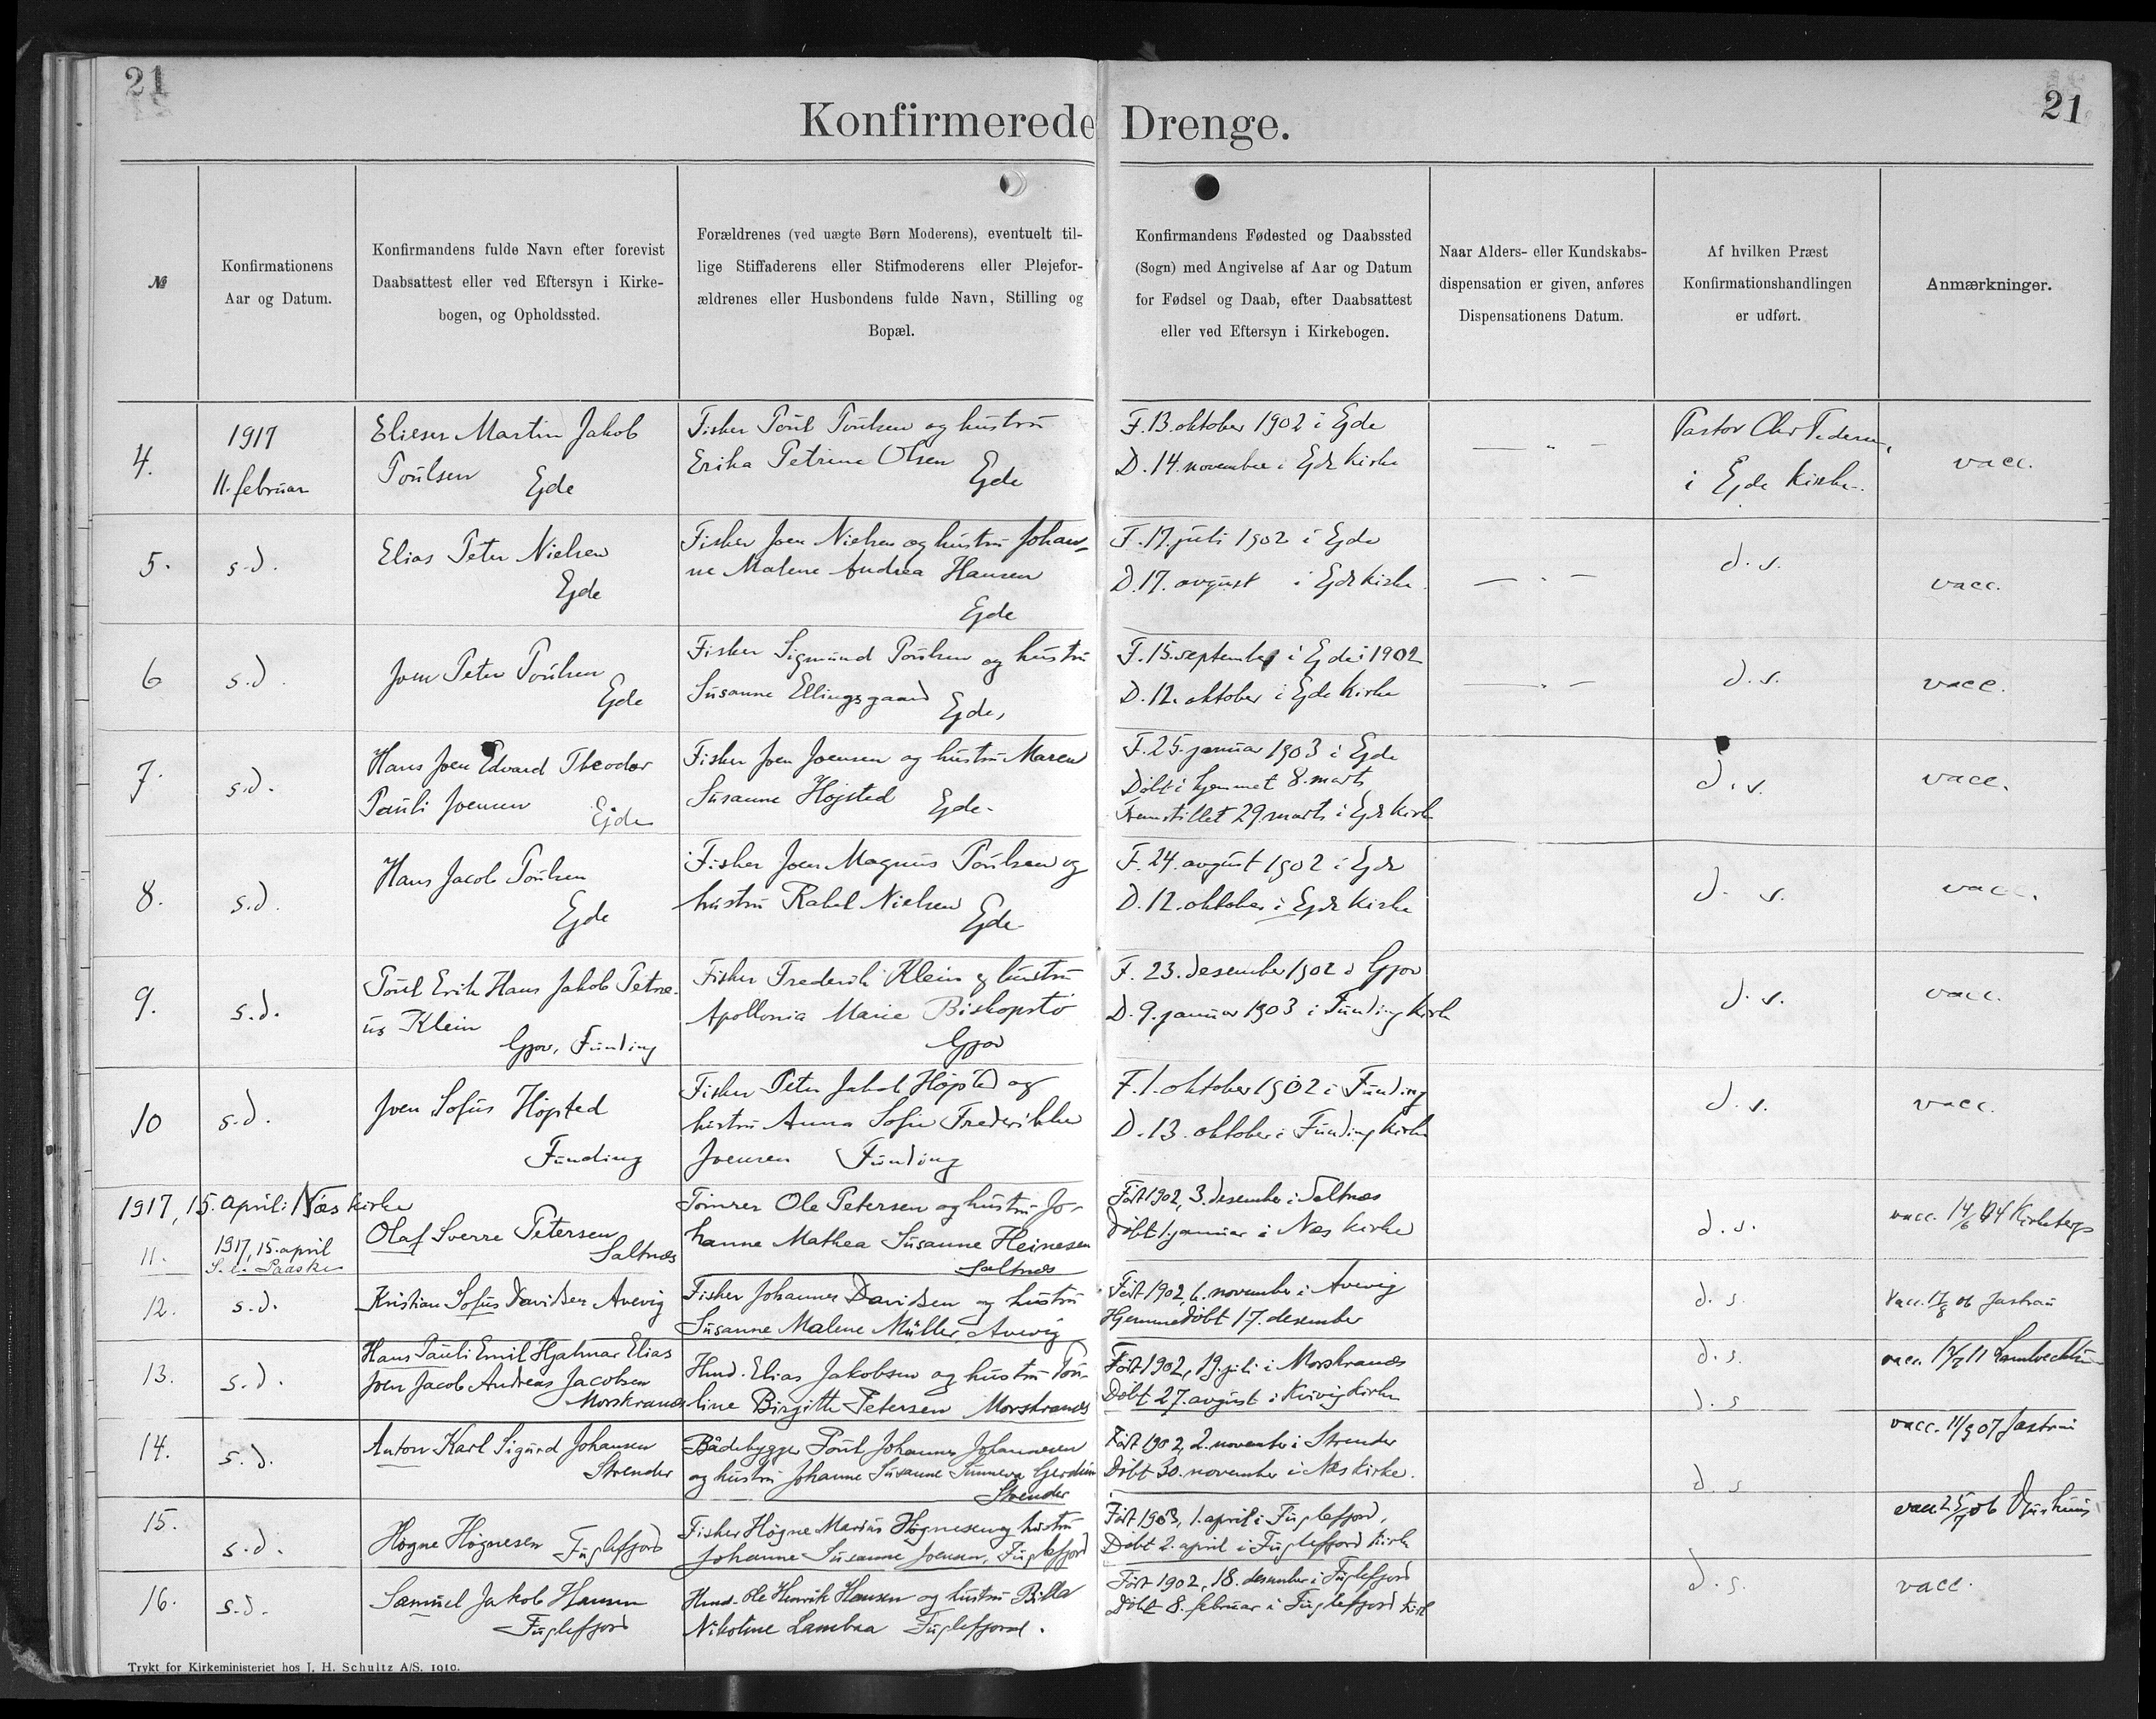 21
21
Konfirmerede Drenge.
№
Konfirmationens
Aar og Datum.
Konfirmandens fulde Navn efter forevist
Daabsattest eller ved Eftersyn i Kirke-
bogen, og Opholdssted.
Forældrenes (ved uægte Børn Moderens), eventuelt til-
lige Stiffaderens eller Stifmoderens eller Plejefor-
ældrenes eller Husbondens fulde Navn, Stilling og
Bopæl.
Konfirmandens Fødested og Daabssted
(Sogn) med Angivelse af Aar og Datum
for Fødsel og Daab, efter Daabsattest
eller ved Eftersyn i Kirkebogen.
Naar Alders- eller Kundskabs-
dispensation er given, anføres
Dispensationens Datum.
Af hvilken Præst
Konfirmationshandlingen
er udført.
Anmærkninger.
4.
1917
11. februar
Elieser Martin Jakob
Poulsen Ejde
Fisker Poul Poulsen og hustru
Erika Petrine Olsen
Ejde
F. 13. oktober 1902 i Ejde
D. 14. november i Ejde kirke
— " —
Pastor Chr Pedersen,
i Ejde kirke.
vacc.
5.
s.d.
Elias Peter Nielsen
Ejde
Fisker Joen Nielsen og hustru Johan-
ne Malene Andrea Hansen
Ejde
F. 17. juli 1902 i Ejde
D. 17. avgust i Ejde kirke
— " —
d. s.
vacc.
6
s.d.
Joen Peter Poulsen
Ejde
Fisker Sigmund Poulsen og hustru
Susanne Ellingsgaard
Ejde,
F. 15. september i Ejde i 1902
D. 12. oktober i Ejde kirke
— " —
d. s.
vacc.
7.
s.d.
Hans Joen Edvard Theodor
Pauli Joensen Ejde
Fisker Joen Joensen og hustru Maren
Susanne Højsted Ejde.
F. 25. januar 1903 i Ejde
Døbt i hjemmet 8. marts
Fremstillet 29. marts i Ejde kirke
d. s.
vacc.
8.
s.d.
Hans Jacob Poulsen
Ejde
Fisker Joen Magnus Poulsen og
hustru Rakel Nielsen
Ejde
F. 24. avgust 1902 i Ejde
D. 12. oktober i Ejde kirke
d. s.
vacc.
9.
s.d.
Poul Erik Hans Jakob Petre-
us Klein
Gjov, Funding
Fisker Frederik Klein og hustru
Apollonia Marie Biskopstø
Gjov
F. 23. desember 1902 i Gjov
D. 9. januar 1903 i Funding kirke
d. s.
vacc.
10
s.d.
Joen Sofus Højsted
Funding
Fisker Peter Jakob Højsted og
hustru Anna Sofie Frederikke
Joensen Funding
F. 1. oktober 1902 i Funding
D. 13. oktober i Funding kirke
d. s.
vacc.
1917, 15. april i Næs kirke
11.
1917, 15. april
S. e. Paaske
Olaf Sverre Petersen
Saltnæs
Tømrer Ole Petersen og hustru Jo-
hanne Mathea Susanne Heinesen
Saltnæs
Født 1902, 3. desember i Saltnæs
Døbt 1. januar i Næs kirke
d. s.
vacc. 14/6
12.
s.d.
Kristian Sofus Davidsen Avevig
Fisker Johannes Davidsen og hustru
Susanne Malene Müller Avevig
Født 1902, 6. november i Avevig
Hjemmedøbt 17. desember
d. s.
vacc. 17/8 06
13.
s.d.
Hans Pauli Emil Hjalmar Elias
Joen Jacob Andreas Jacobsen
Morskranes
Hmd. Elias Jakobsen og hustru Pou-
line Birgitte Petersen Morskranes
Født 1902, 19. juli i Morskranes
Døbt 27. avgust i Kvivig kirke
d. s.
d. s
vacc.
14.
s.d.
Anton Karl Sigurd Johansen
Strender
Bådebygger Poul Johannes Johannesen
og hustru Johanne Susanne Sunneva
Strender
Født 1902, 2. november i Strender
Døbt 30. november i Næs kirke.
d. s
vacc. 11/9 07
15.
s.d.
Høgne Høgnesen Fuglefjord
Fisker Høgne Marius Høgnesen og hustru
Johanne Susanne Joensen, Fuglefjord
Født 1903, 1. april i Fuglefjord,
Døbt 2. april i Fuglefjord kirke
d. s.
vacc. 25/7 06
16.
s.d.
Samuel Jakob Hansen
Fuglefjord
Hmd. Ole Henrik Hansen og hustru Billa
Nikoline Lambaa Fuglefjord.
Født 1902, 18. desember i Fuglefjord
Døbt 8. februar i Fuglefjord kirke
vacc.
Trykt for Kirkeministeriet hos J. H. Schultz A/S. 1910.